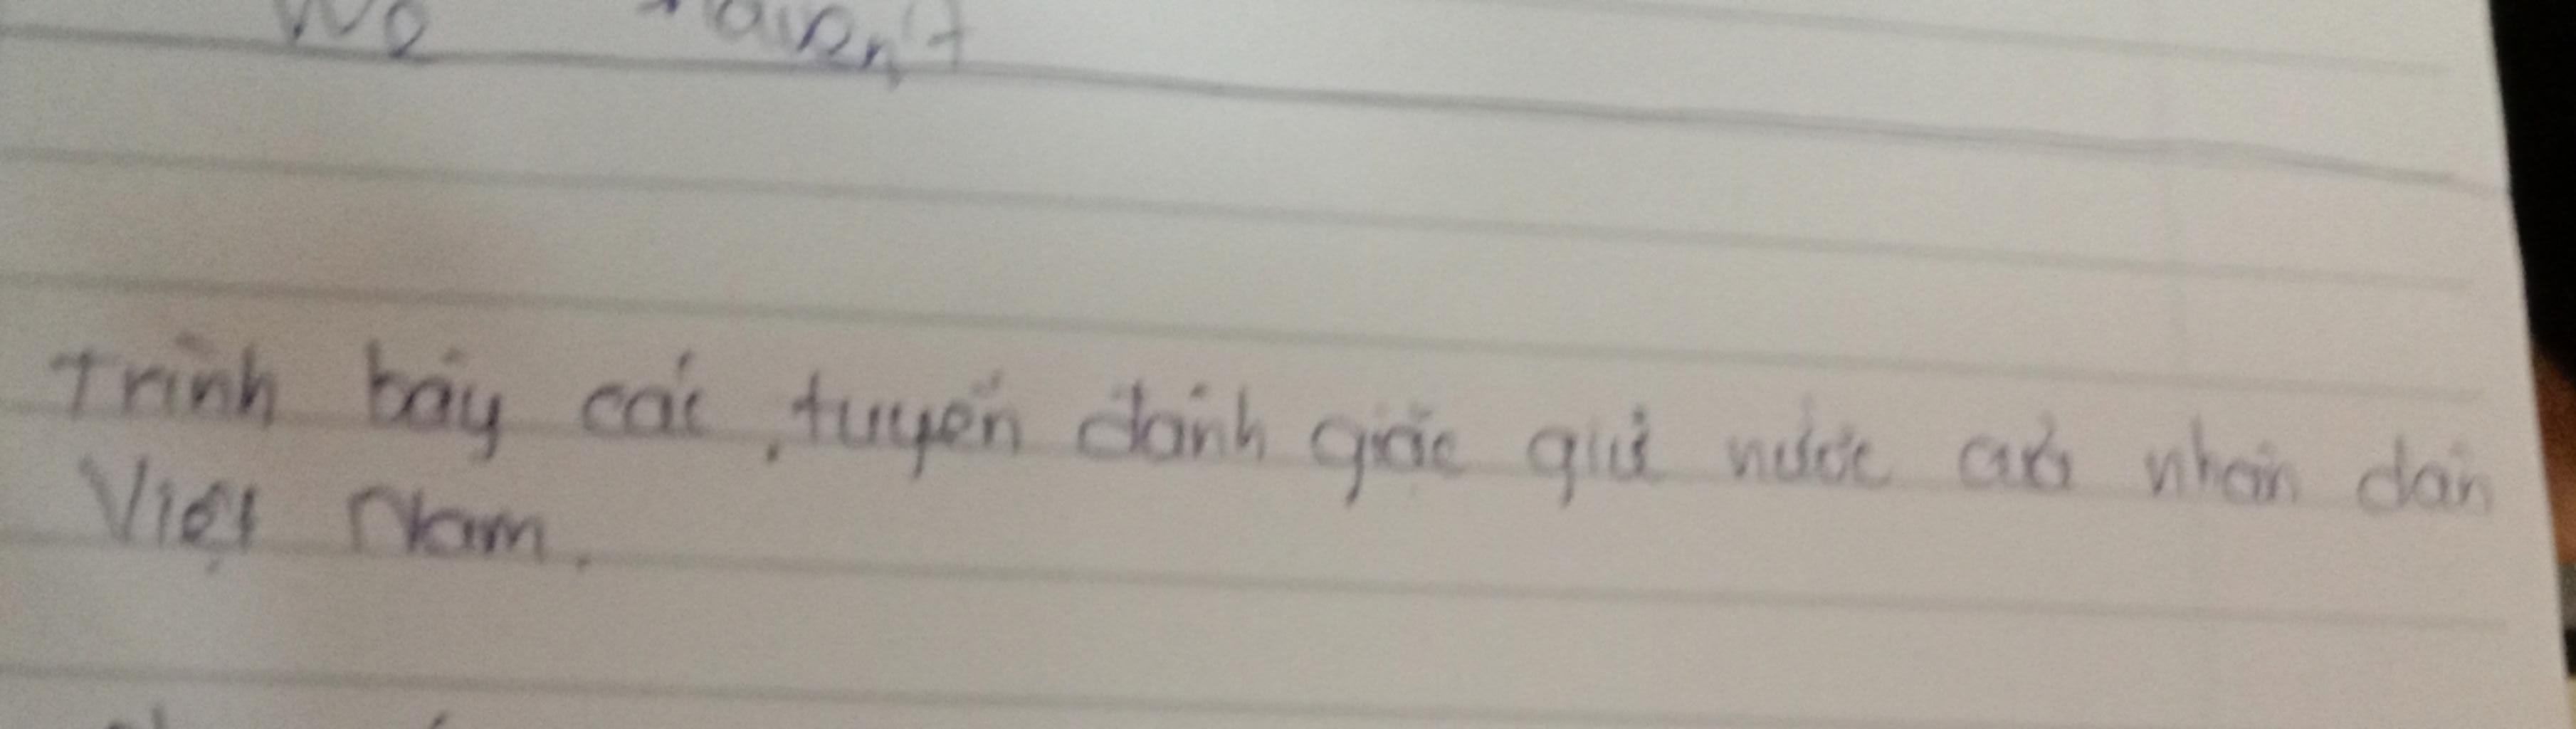 We haven't
Trình bày các, tuyến đánh giặc giữ nước của nhân dân
Việt Nam.